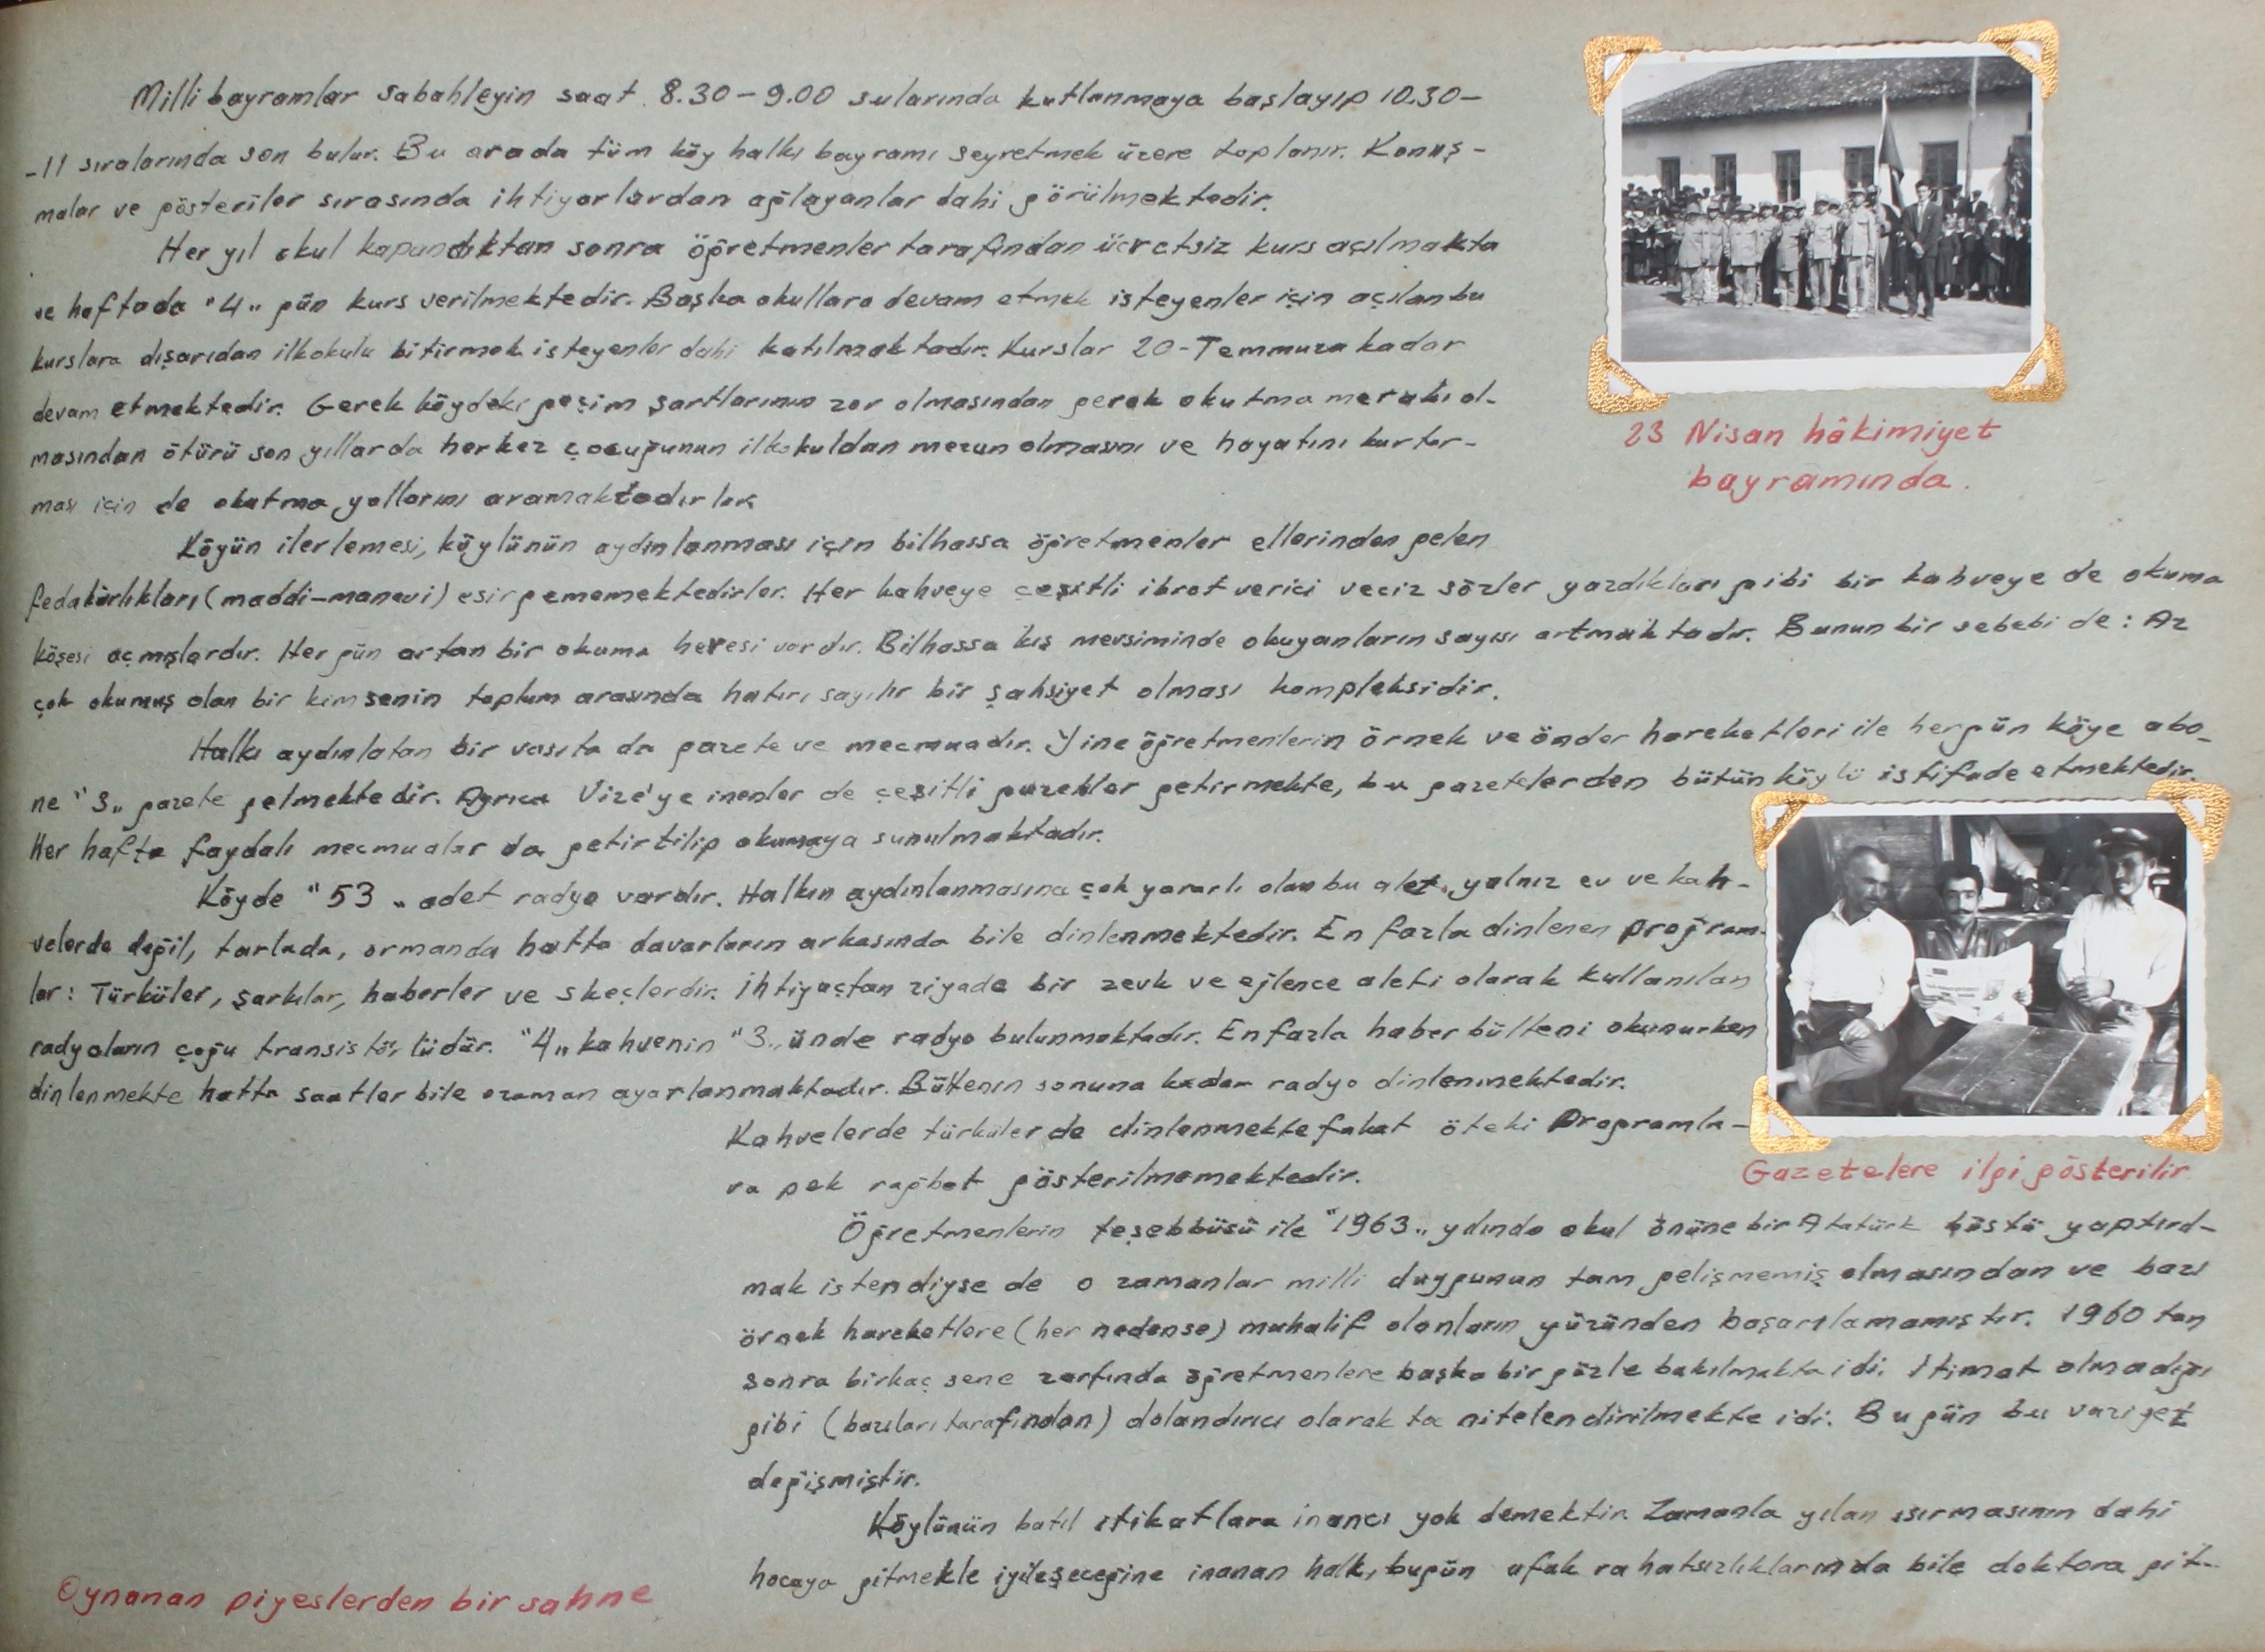 Milli bayramlar sabahleyin saat 8.30-9.00 sularında kutlanmaya başlayıp 10.30-
-11 sıralarında son bulur. Bu arada tüm köy halkı bayramı seyretmek üzere toplanır. Konuş-
malar ve gösteriler sırasında ihtiyarlardan ağlayanlar dahi görülmektedir.
Her yıl okul kapandıktan sonra öğretmenler tarafından ücretsiz kurs açılmakta
ve haftada "4" gün kurs verilmektedir. Başka okullara devam etmek isteyenler için açılan bu
kurslara dışarıdan ilkokulu bitirmek isteyenler dahi katılmaktadır. Kurslar 20-Temmuza kadar
devam etmektedir. Gerek köydeki geçim şartlarının zor olmasından gerek okutma merakı ol-
masından ötürü son yıllarda herkez çocuğunun ilkokuldan mezun olmasını ve hayatını kurtar-
ması için de okutma yollarını aramaktadırlar.
23 Nisan hâkimiyet
bayramında.
Köyün ilerlemesi, köylünün aydınlanması için bilhassa öğretmenler ellerinden gelen
fedakârlıkları (maddi-manevi) esirgememektedirler. Her kahveye çeşitli ibret verici veciz sözler yazdıkları gibi bir kahveye de okuma
köşesi açmışlardır. Her gün artan bir okuma hevesi vardır. Bilhassa kış mevsiminde okuyanların sayısı artmaktadır. Bunun bir sebebi de: Az
çok okumuş olan bir kimsenin toplum arasında hatırı sayılır bir şahsiyet olması kompleksidir.
Halkı aydınlatan bir vasıta da gazete ve mecmuadır. Yine öğretmenlerin örnek ve önder hareketleri ile hergün köye abo-
ne "3" gazete gelmektedir. Ayrıca Vize'ye inenler de çeşitli gazeteler getirmekte, bu gazetelerden bütün köylü istifade etmektedir.
Her hafta faydalı mecmualar da getirtilip okumaya sunulmaktadır.
Köyde "53" adet radyo vardır. Halkın aydınlanmasına çok yararlı olan bu alet, yalnız ev ve kah-
velerde değil, tarlada, ormanda hatta davarların arkasında bile dinlenmektedir. En fazla dinlenen proğram-
lar: Türküler, şarkılar, haberler ve skeçlerdir. İhtiyaçtan ziyade bir zevk ve eğlence aleti olarak kullanılan
radyoların çoğu transistörlüdür. "4" kahvenin "3" ünde radyo bulunmaktadır. En fazla haber bülteni okunurken
dinlenmekte hatta saatler bile ozaman ayarlanmaktadır. Bültenin sonuna kadar radyo dinlenmektedir.
Kahvelerde türküler de dinlenmekte fakat öteki programla-
ra pek rağbet gösterilmemektedir.
Gazetelere ilgi gösterilir.
Öğretmenlerin teşebbüsü ile "1963" yılında okul önüne bir Atatürk büstü yaptırıl-
mak istendiyse de o zamanlar milli duygunun tam gelişmemiş olmasından ve bazı
örnek hareketlere (her nedense) muhalif olanların yüzünden başarılamamıştır. 1960 tan
sonra birkaç sene zarfında öğretmenlere başka bir gözle bakılmakta idi. İtimat olmadığı
gibi (bazıları tarafından) dolandırıcı olarak ta nitelendirilmekte idi. Bu gün bu vaziyet
değişmiştir.
Köylünün batıl itikatlara inancı yok demektir. Zamanla yılan ısırmasının dahi
hocaya gitmekle iyileşeceğine inanan halk, bugün ufak rahatsızlıklarında bile doktora git-
Oynanan piyeslerden bir sahne